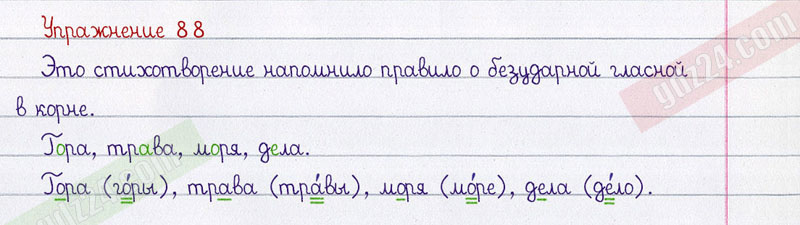 Упражнение 88
Это стихотворение напомнило правило о безударной гласной
в корне.
Гора, трава, моря, дела.
Гора (го́ры), трава (тра́вы), моря (мо́ре), дела (де́ло).
gdz24.com
gdz24.com